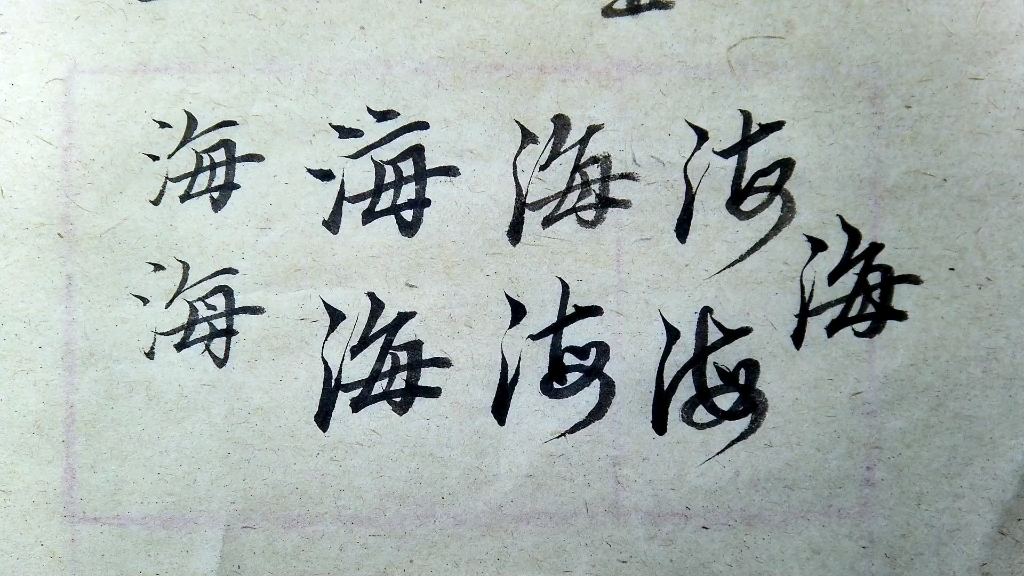 海海海海
海海海海海